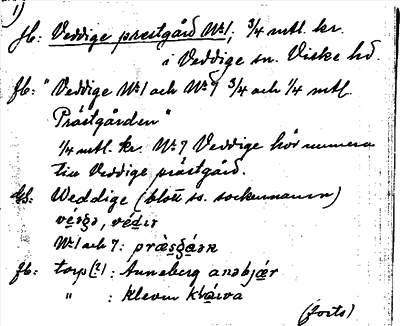 1)
fb: Veddige prästgård No 1, 3/4 mtl. kr.
i Veddige sn. Viske hd.
fb: "Veddige No 1 och No 7 3/4 och 1/4 mtl.
Prästgården"
1/4 mtl. kr. No 7 Veddige hör numera
till Veddige prästgård.
Weddige (blott ss. sockennamn)
No 1 och 7:
fb: torp(?): Anneberg
" : Kleven
(forts)